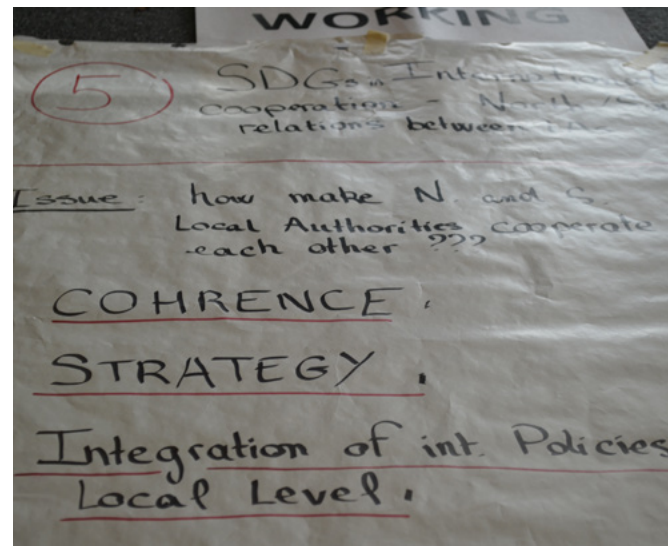 WORKING
5
SDGs in International
cooperation - North
relations between
Issue: how make N. and S.
Local Authorities cooperate
each other ???
COHRENCE.
STRATEGY.
Integration of int. Policies
Local Level.